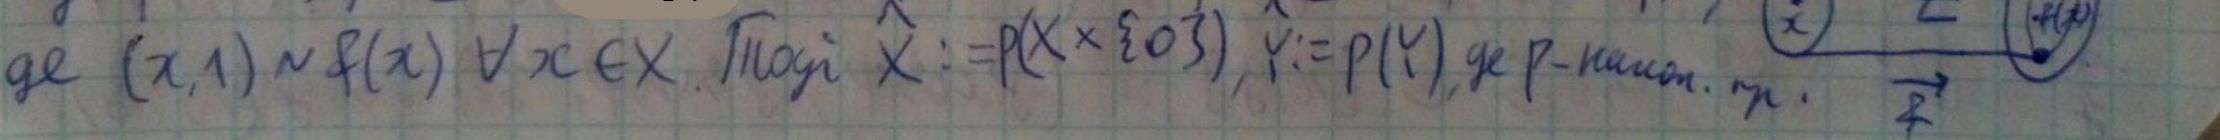 де (x,1) ~ f(x) ∀ x ∈ X. Тоді X̂ := p(X × {0}), Ŷ := p(Y), де p - канон. пр.
x f(x)
f⃗